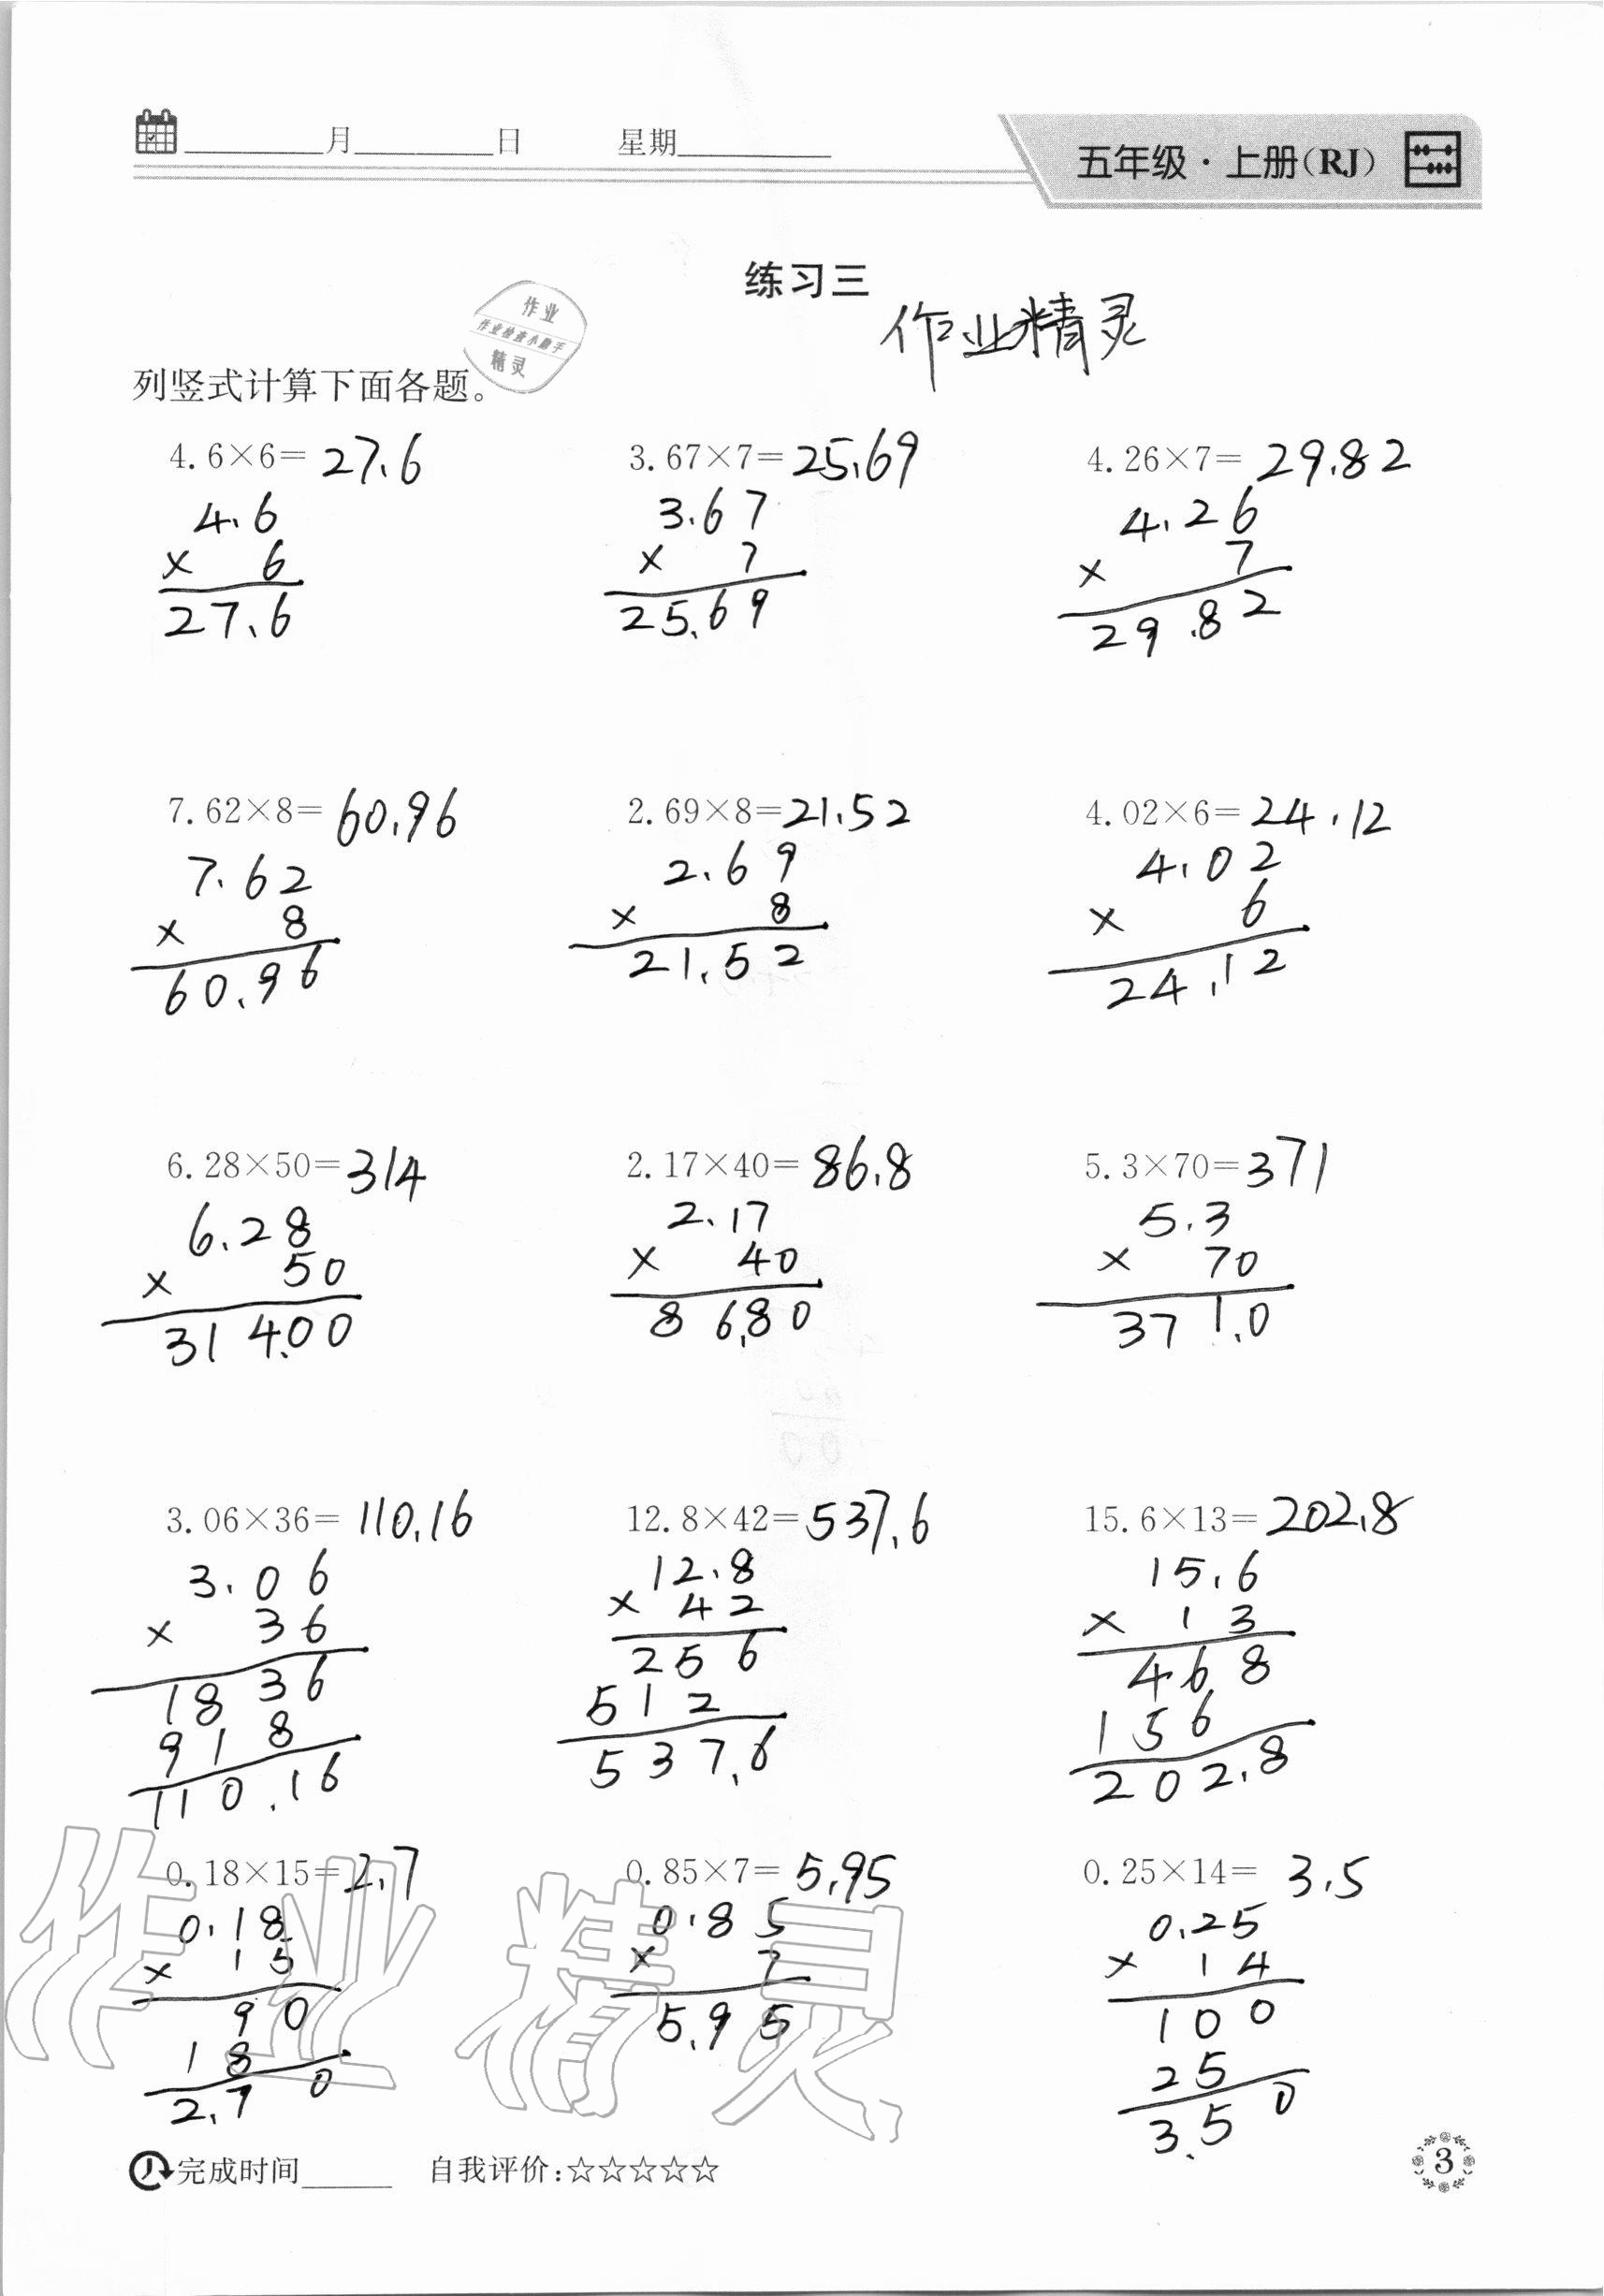 月 日 星期
五年级·上册(RJ)
练习三
作业精灵
作业
作业检查小助手
精灵
列竖式计算下面各题。
4.6×6=27.6 3.67×7=25.69 4.26×7=29.82
4.6 3.67 4.26
× 6 × 7 × 7
27.6 25.69 29.82
7.62×8=60.96 2.69×8=21.52 4.02×6=24.12
7.62 2.69 4.02
× 8 × 8 × 6
60.96 21.52 24.12
6.28×50=314 2.17×40=86.8 5.3×70=371
6.28 2.17 5.3
× 50 × 40 × 70
314.00 86.80 371.0
3.06×36=110.16 12.8×42=537.6 15.6×13=202.8
3.06 12.8 15.6
× 36 × 42 × 13
1836 256 468
918 512 156
110.16 537.6 202.8
0.18×15=2.7 0.85×7=5.95 0.25×14=3.5
0.18 0.85 0.25
× 15 × 7 × 14
90 5.95 100
18 25
2.70 3.50
作业精灵
完成时间 自我评价:☆☆☆☆☆
3